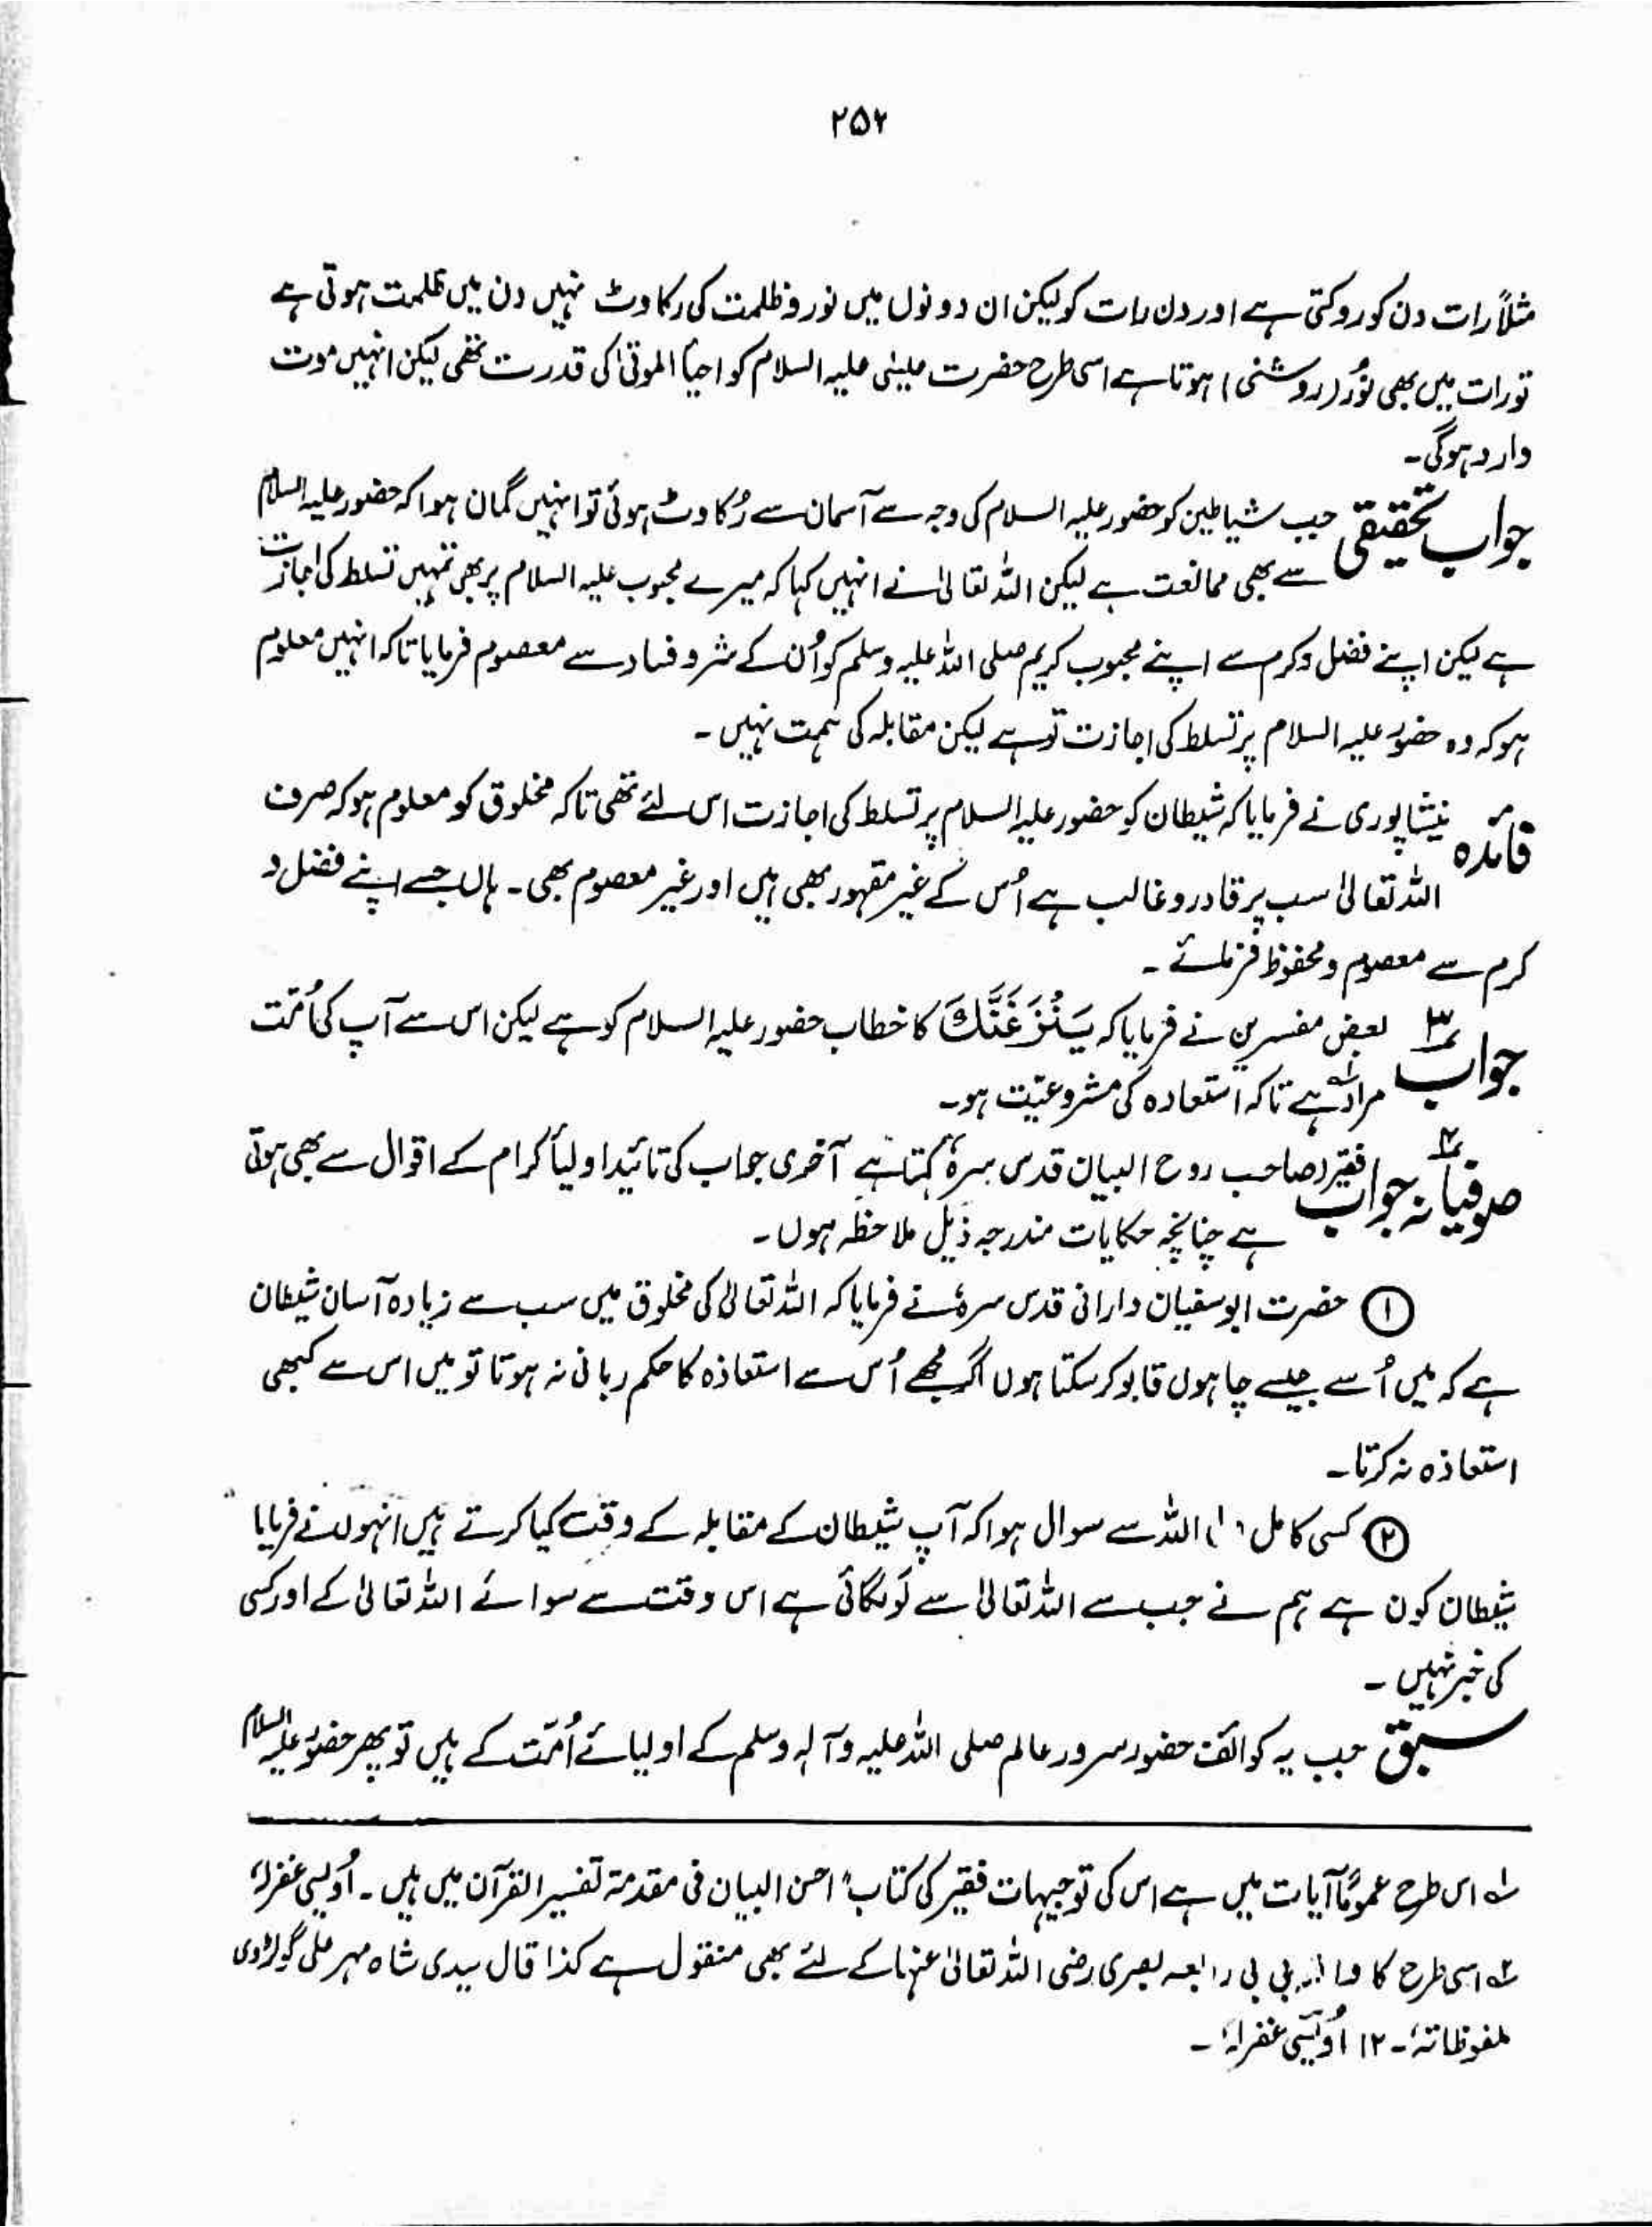 ۲۵۲
مثلاً رات دن کو روکتی ہے اور دن رات کو لیکن ان دونوں میں نور و ظلمت کی رکاوٹ نہیں دن میں ظلمت ہوتی ہے
تو رات میں بھی نُور (روشنی) ہوتا ہے اسی طرح حضرت عیسٰی علیہ السلام کو احیأ الموتٰی کی قدرت تھی لیکن انہیں موت
وارد ہوگی۔
جواب تحقیقی جب شیاطین کو حضور علیہ السلام کی وجہ سے آسمان سے رُکاوٹ ہوئی تو انہیں گمان ہوا کہ حضور علیہ السلام
سے بھی ممانعت ہے لیکن اللہ تعالیٰ نے انہیں کہا کہ میرے محبوب علیہ السلام پر بھی تمہیں تسلط کی اجازت
ہے لیکن اپنے فضل و کرم سے اپنے محبوب کریم صلی اللہ علیہ وسلم کو اُن کے شر و فساد سے معصوم فرمایا تاکہ انہیں معلوم
ہو کہ وہ حضور علیہ السلام پر تسلط کی اجازت تو ہے لیکن مقابلہ کی ہمت نہیں ۔
فائدہ نیشاپوری نے فرمایا کہ شیطان کو حضور علیہ السلام پر تسلط کی اجازت اس لئے تھی تاکہ مخلوق کو معلوم ہو کہ صرف
اللہ تعالیٰ سب پر قادر و غالب ہے اُس کے غیر مقہور بھی ہیں اور غیر معصوم بھی ۔ ہاں جسے اپنے فضل و
کرم سے معصوم و محفوظ فرمائے ۔
جواب ۳ بعض مفسرین نے فرمایا کہ یَنْزَغَنَّكَ کا خطاب حضور علیہ السلام کو ہے لیکن اس سے آپ کی اُمّت
مراد ہے تاکہ استعاذہ کی مشروعیّت ہو۔
صوفیانہ جواب ۴ فقیر (صاحب روح البیان قدس سرہٗ کہتا ہے آخری جواب کی تائید اولیأ کرام کے اقوال سے بھی ہوتی
ہے چنانچہ حکایات مندرجہ ذیل ملاحظہ ہوں ۔
① حضرت ابوسفیان دارانی قدس سرہٗ نے فرمایا کہ اللہ تعالیٰ کی مخلوق میں سب سے زیادہ آسان شیطان
ہے کہ میں اُسے جیسے چاہوں قابو کر سکتا ہوں اگر مجھے اُس سے استعاذہ کا حکم ربانی نہ ہوتا تو میں اس سے کبھی
استعاذہ نہ کرتا۔
② کسی کامل اللہ سے سوال ہوا کہ آپ شیطان کے مقابلہ کے وقت کیا کرتے ہیں انہوں نے فرمایا
شیطان کون ہے ہم نے جب سے اللہ تعالیٰ سے لَو لگائی ہے اس وقت سے سوائے اللہ تعالیٰ کے اور کسی
کی خبر نہیں ۔
سبق جب یہ کوائف حضور سرور عالم صلی اللہ علیہ وآلہ وسلم کے اولیائے اُمّت کے ہیں تو پھر حضور علیہ السلام
۱؎ اس طرح عموماً آیات میں ہے اس کی توجیہات فقیر کی کتاب "احسن البیان فی مقدمۃ تفسیر القرآن میں ہیں ۔ اُویسی غفرلہٗ
۲؎ اسی طرح کا بی بی رابعہ بصری رضی اللہ تعالیٰ عنہا کے لئے بھی منقول ہے کذا قال سیدی شاہ مہر علی گولڑوی
ملفوظاتہٗ ۔ ۱۲ اُویسی غفرلہٗ ۔